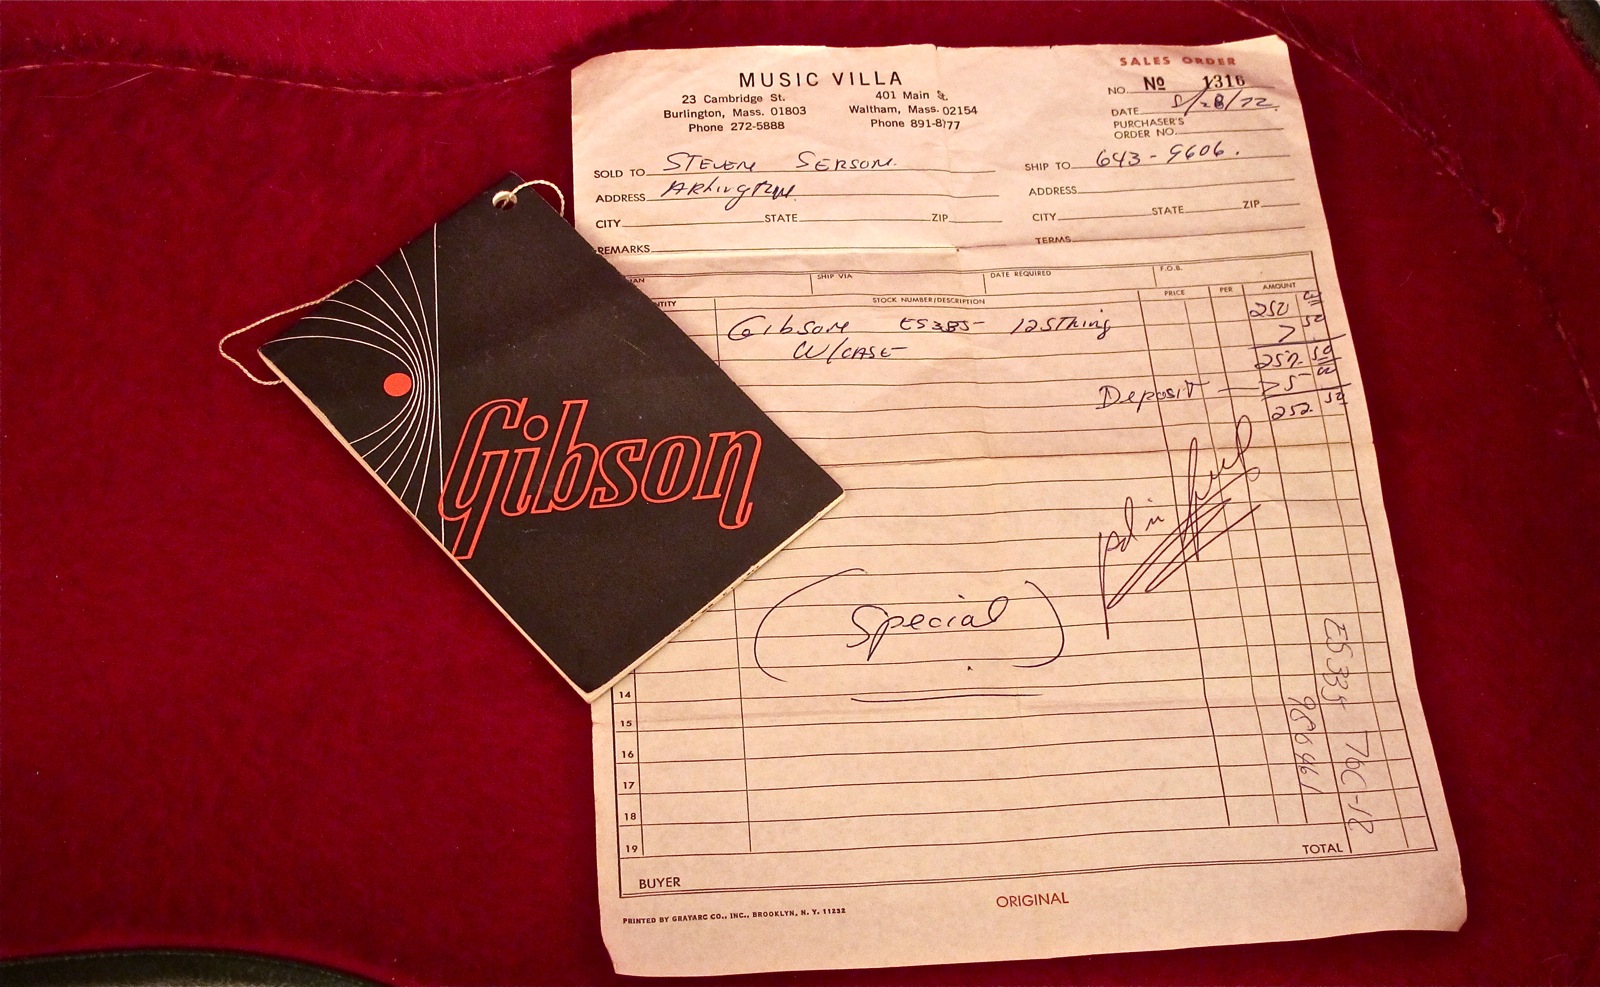 Gibson
SALES ORDER
MUSIC VILLA
23 Cambridge St.
Burlington, Mass. 01803
Phone 272-5888
401 Main St.
Waltham, Mass. 02154
Phone 891-8177
NO. Nº 1316
DATE
PURCHASER'S
ORDER NO.
SOLD TO STEVEN SERSON.
SHIP TO 643-9606.
ADDRESS Arlington
ADDRESS
CITY STATE ZIP
CITY STATE ZIP
REMARKS
TERMS
SHIP VIA DATE REQUIRED F.O.B.
STOCK NUMBER/DESCRIPTION PRICE PER AMOUNT
Gibson ES335- 12 String 250
W/CASE
Deposit
252. 50
pd in full
(Special)
ES335 T6C-12
14
15
16
17
18
19
TOTAL
BUYER
ORIGINAL
PRINTED BY GRAYARC CO., INC., BROOKLYN, N. Y. 11232